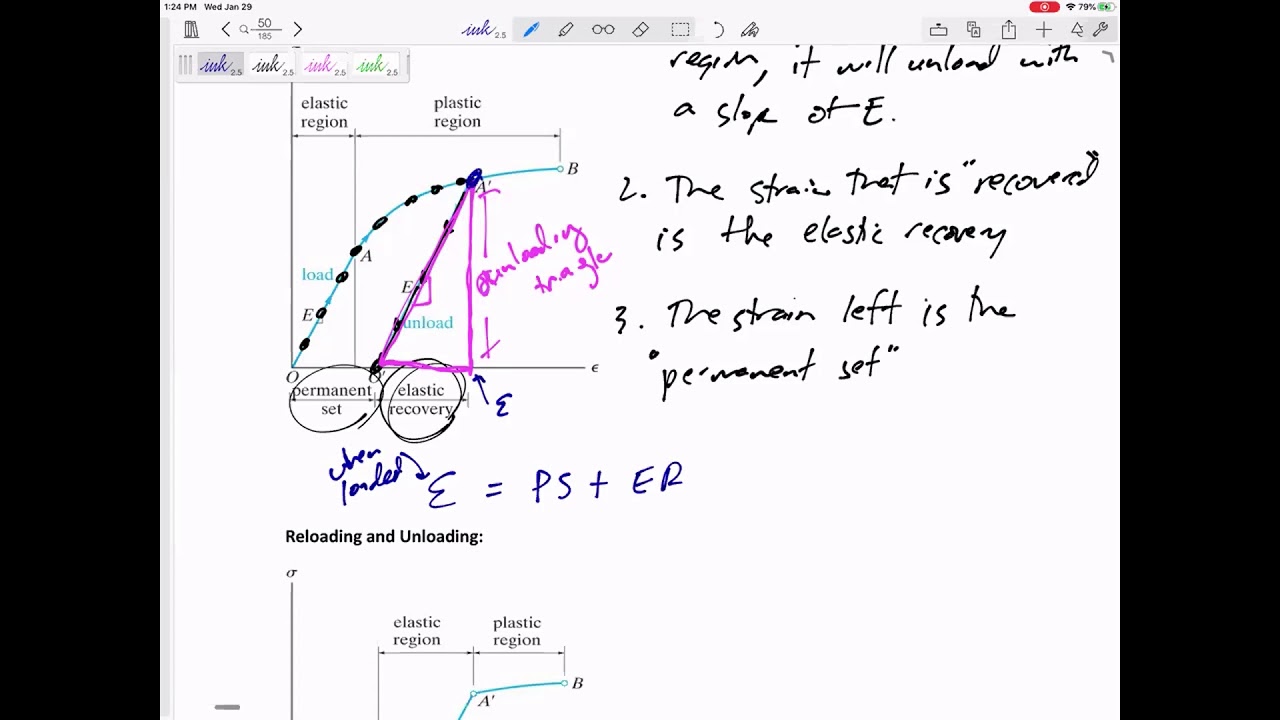 1:24 PM Wed Jan 29
79%
50
185
ink 2.5
ink 2.5
ink 2.5
ink 2.5
ink 2.5
region, it will unload with
a slope of E.
2. The strain that is "recovered"
is the elastic recovery
3. The strain left is the
"permanent set"
elastic
region
plastic
region
B
A'
A
load
E
E
unload
unloading
triangle
O
O'
ϵ
permanent
set
elastic
recovery
ε
when
loaded
ε = PS + ER
Reloading and Unloading:
σ
elastic
region
plastic
region
B
A'